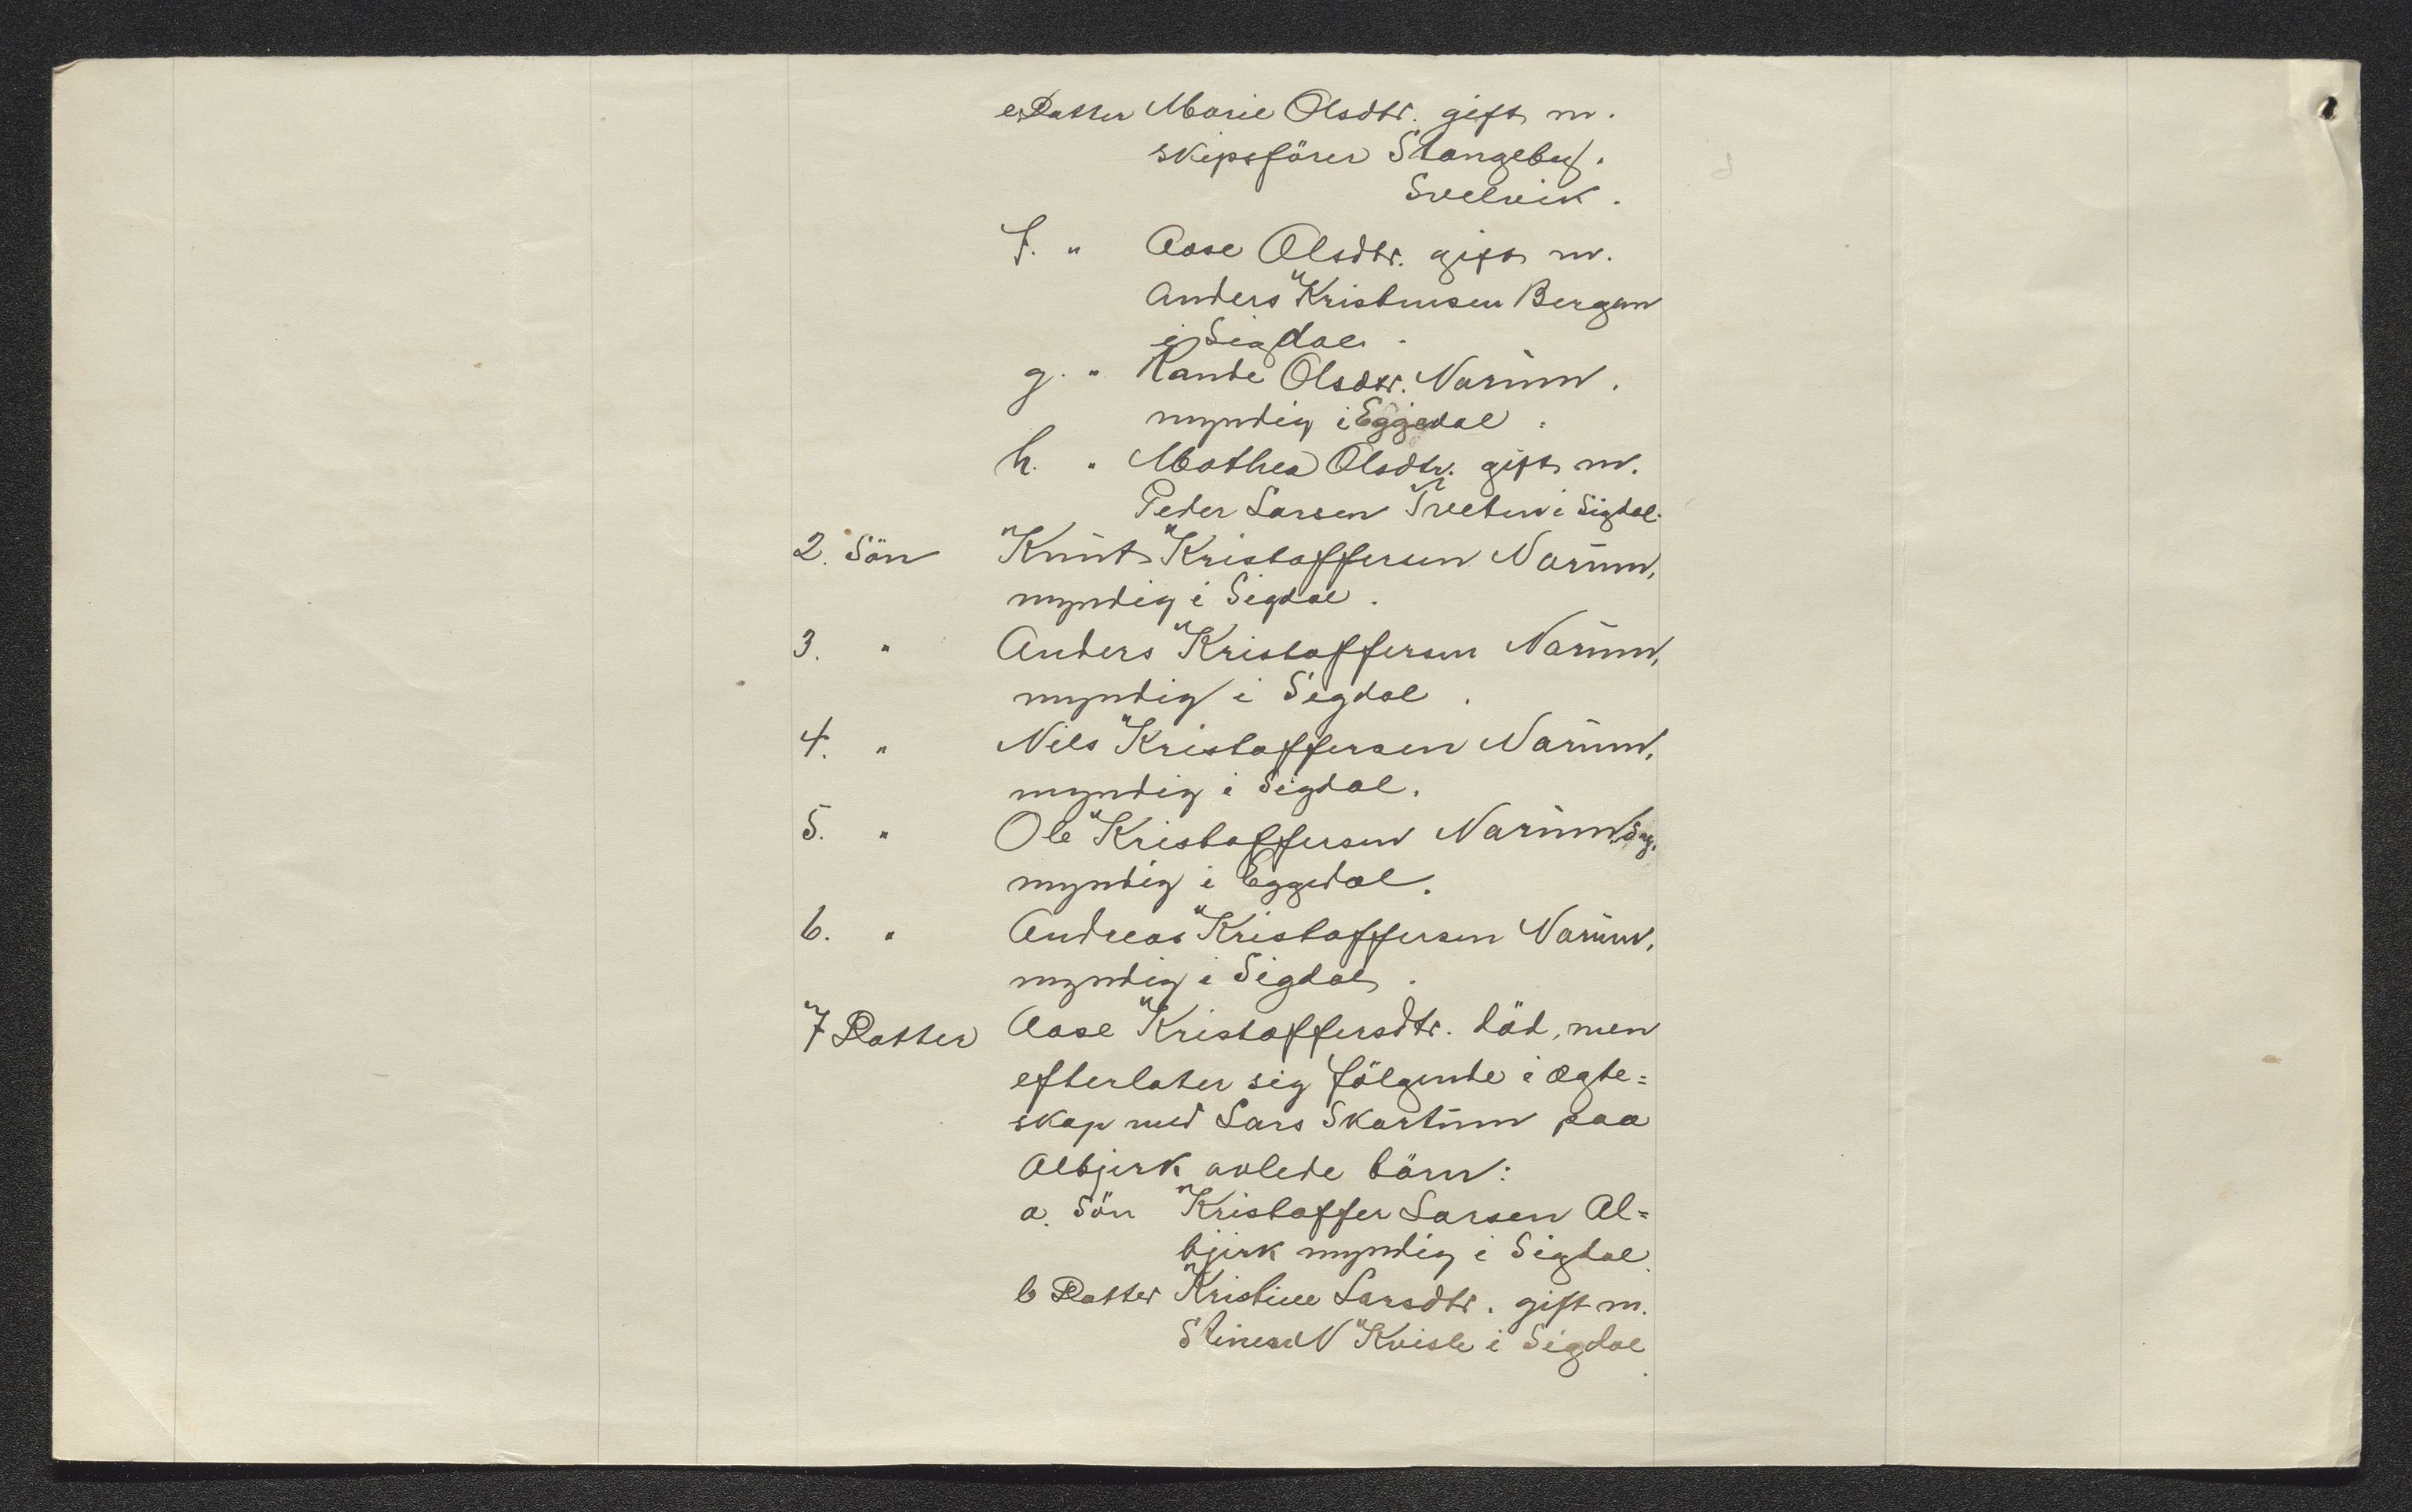 e. Datter Marie Olsdtr. gift m.
skipsförer Stangeby.
Svelvik.
f. " Aase Olsdtr. gift m.
Anders Kristensen Bergan
i Sigdal.
g. " Rande Olsdtr. Narum.
myndig i Eggedal.
h. " Mathea Olsdtr. gift m.
Peder Larsen Tveten i Sigdal.
2. Sön Knut Kristoffersen Narum,
myndig i Sigdal.
3. " Anders Kristoffersen Narum,
myndig i Sigdal.
4. " Nils Kristoffersen Narum,
myndig i Sigdal.
5. " Ole Kristoffersen Narum
myndig i Eggedal.
6. " Andreas Kristoffersen Narum,
myndig i Sigdal.
7 Datter Aase Kristoffersdtr. död, men
efterlater sig fölgende i ægte=
skap med Lars Skartum paa
Albjerk avlede börn:
a. Sön Kristoffer Larsen Al=
bjerk myndig i Sigdal.
b Datter Kristine Larsdtr. gift m.
Steinar N Kvisle i Sigdal.